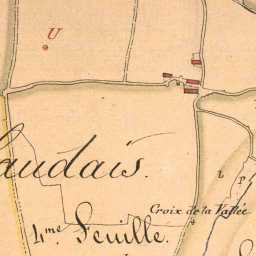 U
audais.
l p
Croix de la Vallée
4me Feuille.